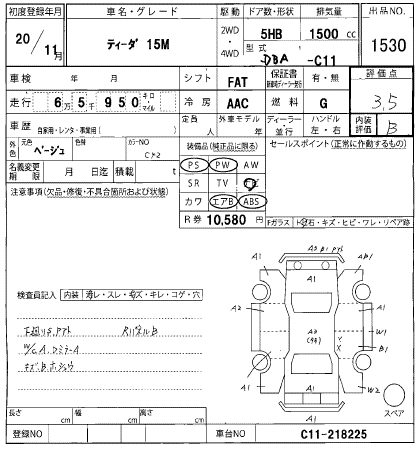 初度登録年月 車名・グレード 駆動 ドア数・形状 排気量 出品NO.
20/11月 ティーダ 15M 2WD・4WD 5HB 1500cc 1530
型式 DBA-C11
車検 年 月 シフト FAT 保証書 有・無 評価点
走行 6万5千950 キロ・マイル 冷房 AAC 燃料 G 3.5
車歴 自家用・レンタ・事業用( ) 定員 人 外車モデル 年 ディーラー 並行 ハンドル 左・右 内装評価 B
外色 ベージュ 色替 カラーNO 装備品(純正品に限る) セールスポイント(正常に作動するもの)
名義変更期限 月 日迄 積載 t PS PW AW
注意事項(欠品・修復・不具合箇所および状態) SR TV ナビ
カワ エアB ABS
R券 10,580円
Fガラス トビ石・キズ・ヒビ・ワレ・リペア跡
検査員記入 内装 汚レ・スレ・キズ・キレ・コゲ・穴
A1 A1 AB1
A1
A2 W1
B1
A1 A1 W2
A1
スペア
長さ cm 幅 cm 高さ cm
登録NO 車台NO C11-218225